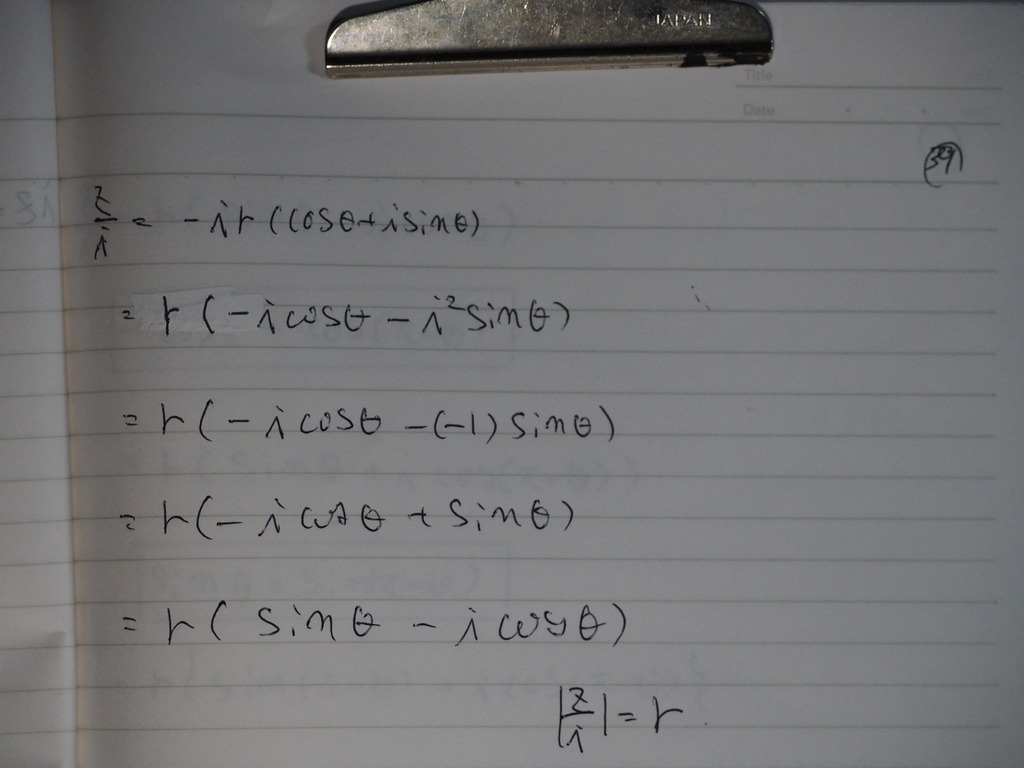 JAPAN
Title
Date
(39)
z/i = -ir(cosθ+isinθ)
= r(-icosθ - i²sinθ)
= r(-icosθ -(-1)sinθ)
= r(-icosθ + sinθ)
= r(sinθ - icosθ)
|z/i| = r.